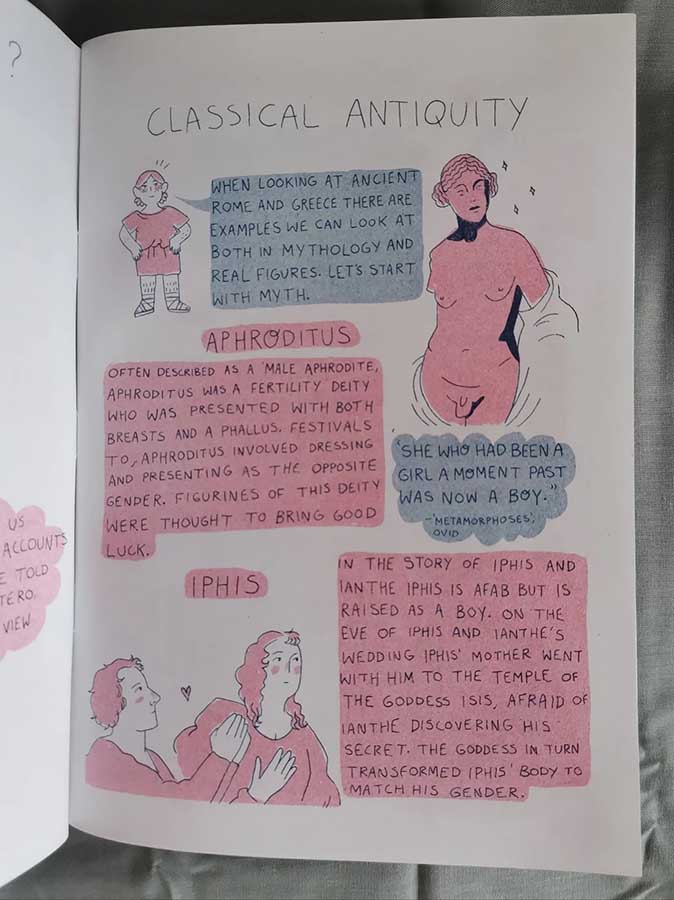 ?
US
ACCOUNTS
E TOLD
TERO,
VIEW
CLASSICAL ANTIQUITY
WHEN LOOKING AT ANCIENT
ROME AND GREECE THERE ARE
EXAMPLES WE CAN LOOK AT
BOTH IN MYTHOLOGY AND
REAL FIGURES. LET'S START
WITH MYTH.
APHRODITUS
OFTEN DESCRIBED AS A 'MALE APHRODITE,
APHRODITUS WAS A FERTILITY DEITY
WHO WAS PRESENTED WITH BOTH
BREASTS AND A PHALLUS. FESTIVALS
TO, APHRODITUS INVOLVED DRESSING
AND PRESENTING AS THE OPPOSITE
GENDER. FIGURINES OF THIS DEITY
WERE THOUGHT TO BRING GOOD
LUCK.
'SHE WHO HAD BEEN A
GIRL A MOMENT PAST
WAS NOW A BOY."
-'METAMORPHOSES',
OVID
IPHIS
IN THE STORY OF IPHIS AND
IANTHE IPHIS IS AFAB BUT IS
RAISED AS A BOY. ON THE
EVE OF IPHIS AND IANTHE'S
WEDDING IPHIS' MOTHER WENT
WITH HIM TO THE TEMPLE OF
THE GODDESS ISIS, AFRAID OF
IANTHE DISCOVERING HIS
SECRET. THE GODDESS IN TURN
TRANSFORMED IPHIS' BODY TO
MATCH HIS GENDER.